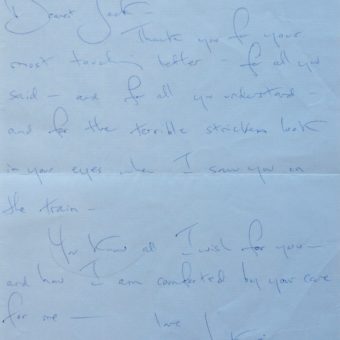 Dearest Jack -
Thank you for your
most touching letter - for all you
said - and for all you understand -
and for the terrible stricken look
in your eyes when I saw you on
the train -
You know all I wish for you -
and how I am comforted by your care
for me -
love